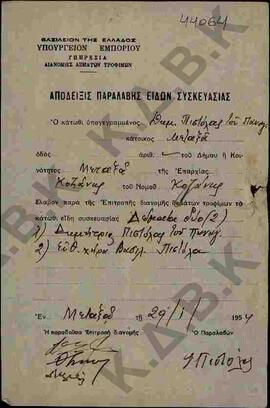 44064
ΒΑΣΙΛΕΙΟΝ ΤΗΣ ΕΛΛΑΔΟΣ
ΥΠΟΥΡΓΕΙΟΝ ΕΜΠΟΡΙΟΥ
ΥΠΗΡΕΣΙΑ
ΔΙΑΝΟΜΗΣ ΔΕΜΑΤΩΝ ΤΡΟΦΙΜΩΝ
ΑΠΟΔΕΙΞΙΣ ΠΑΡΑΛΑΒΗΣ ΕΙΔΩΝ ΣΥΣΚΕΥΑΣΙΑΣ
Ὁ κάτωθι ὑπογεγραμμένος Δημ. Πιστόλας τοῦ Παναγ.
κάτοικος Μεταξᾶ
ὁδὸς ἀριθ. τοῦ Δήμου ἢ Κοι-
νότητος Μεταξᾶ τῆς Ἐπαρχίας
Κοζάνης τοῦ Νομοῦ Κοζάνης
ἔλαβον παρὰ τῆς Ἐπιτροπῆς διανομῆς δεμάτων τροφίμων τὰ
κάτωθι εἴδη συσκευασίας Δέματα δύο (2)
1) Δημήτριος Πιστόλας τοῦ Παναγ.
2) χήρα Βασιλ. Πιστόλα
Ἐν Μεταξᾷ τῇ 29/1/1954
Ἡ παραδοῦσα Ἐπιτροπὴ διανομῆς Ὁ Παραλαβὼν
Πιστόλας
Κ.Δ.Β.Κ